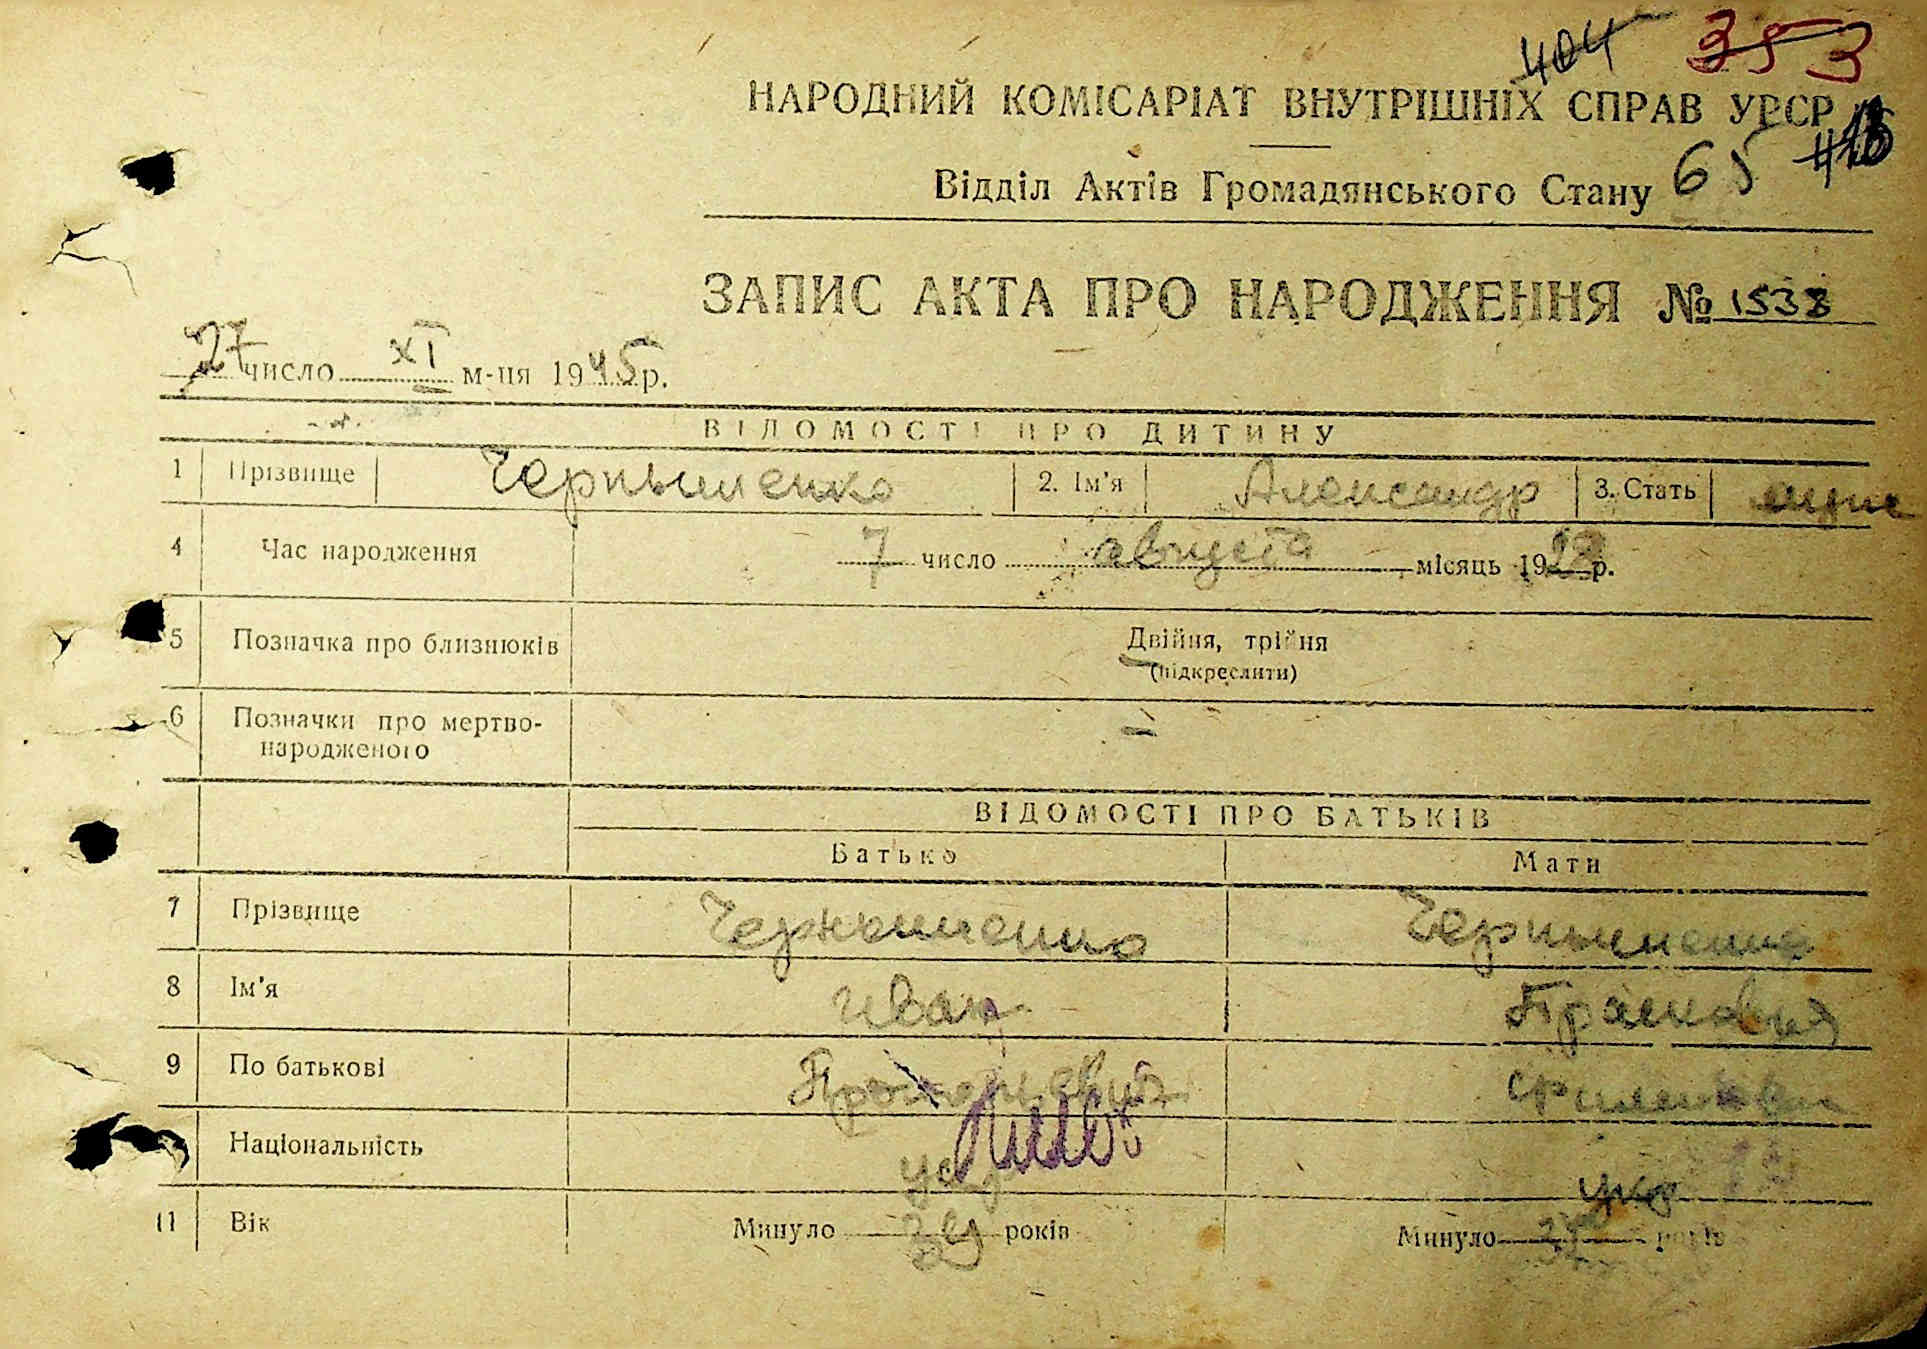 404 353
НАРОДНИЙ КОМІСАРІАТ ВНУТРІШНІХ СПРАВ УРСР
Відділ Актів Громадянського Стану 65
ЗАПИС АКТА ПРО НАРОДЖЕННЯ № 1538
27 число XI м-ця 1945 р.
ВІДОМОСТІ ПРО ДИТИНУ
1 Прізвище Чернышенко 2. Ім'я Александр 3. Стать муж
4 Час народження 7 число августа місяць 19 р.
5 Позначка про близнюків Двійня, трійня
(підкреслити)
6 Позначки про мертво-
народженого
ВІДОМОСТІ ПРО БАТЬКІВ
Батько Мати
7 Прізвище Чернышенко Чернышенко
8 Ім'я Иван Прасковья
9 По батькові
Національність укр укр
11 Вік Минуло років Минуло років